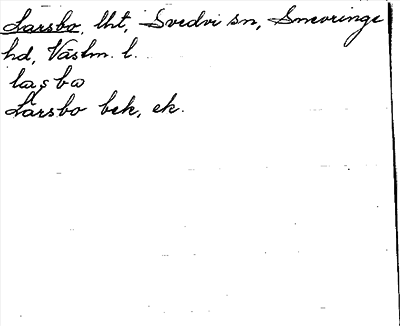 Larsbo, lht, Svedvi sn, Snevringe
hd, Västm. l.
laʂbω
Larsbo bek, ek.